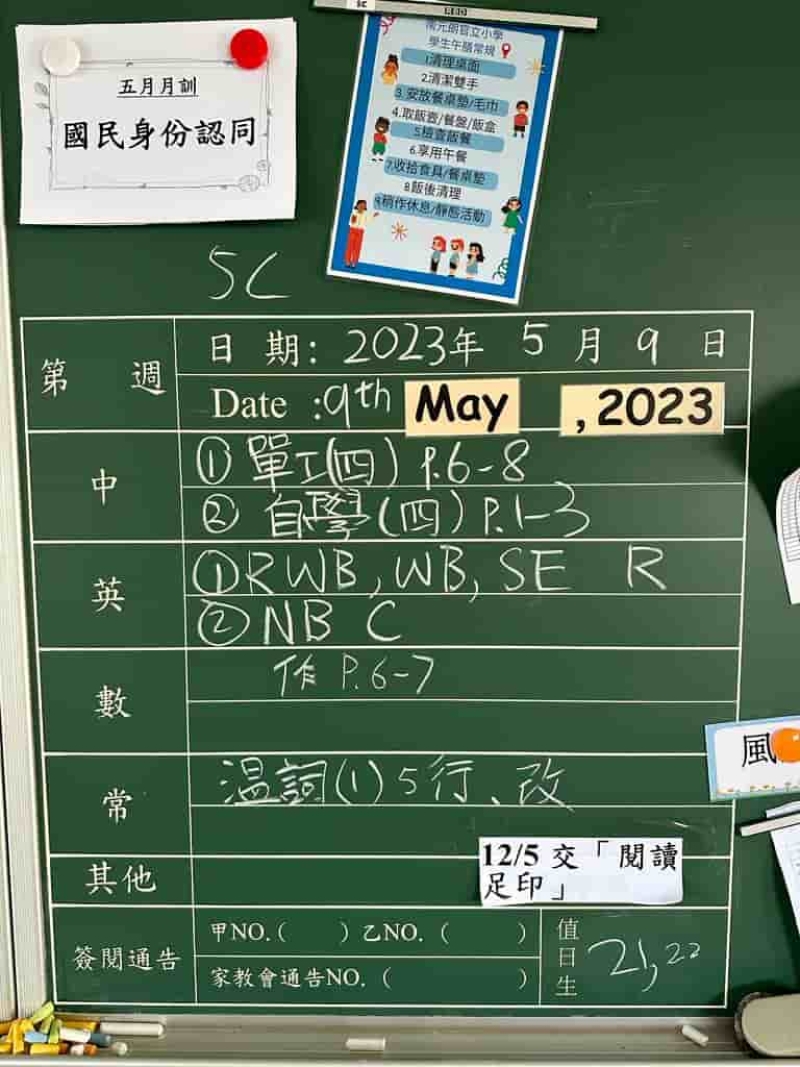 五月月訓
國民身份認同
南元朗官立小學
學生午膳常規
1.清理桌面
2.清潔雙手
3.安放餐桌墊/毛巾
4.取飯壺/餐盤/飯盒
5.檢查飯餐
6.享用午餐
7.收拾食具/餐桌墊
8.飯後清理
9.稍作休息/靜態活動
5C
第 週
日 期: 2023年 5 月 9 日
Date :9th May , 2023
中
① 單工(四) P.6-8
② 自學(四) P.1-3
英
① RWB, WB, SE R
② NB C
數
作 P.6-7
常
温詞(1) 5行、改
其他
12/5 交「閱讀
足印」
簽閱通告
甲NO.( ) 乙NO. ( )
家教會通告NO. ( )
值日生
21,22
風